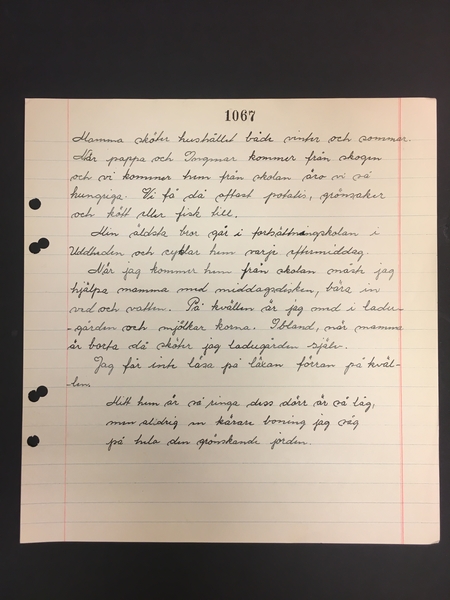 1067
Mamma sköter hushållet både vinter och sommar.
När pappa och Ingmar kommer från skogen
och vi kommer hem från skolan äro vi så
hungriga. Vi få då oftast potatis, grönsaker
och kött eller fisk till.
Min äldsta bror går i fortsättningskolan i
Uddheden och cyklar hem varje eftermiddag.
När jag kommer hem från skolan måste jag
hjälpa mamma med middagsdisken, bära in
ved och vatten. På kvällen är jag med i ladu-
-gården och mjölkar korna. Ibland, när mamma
är borta då sköter jag ladugården själv.
Jag får inte läsa på läxan förran på kväl-
-len.
Mitt hem är så ringa dess dörr är så låg,
men aldrig en kärare boning jag såg
på hela den grönskande jorden.